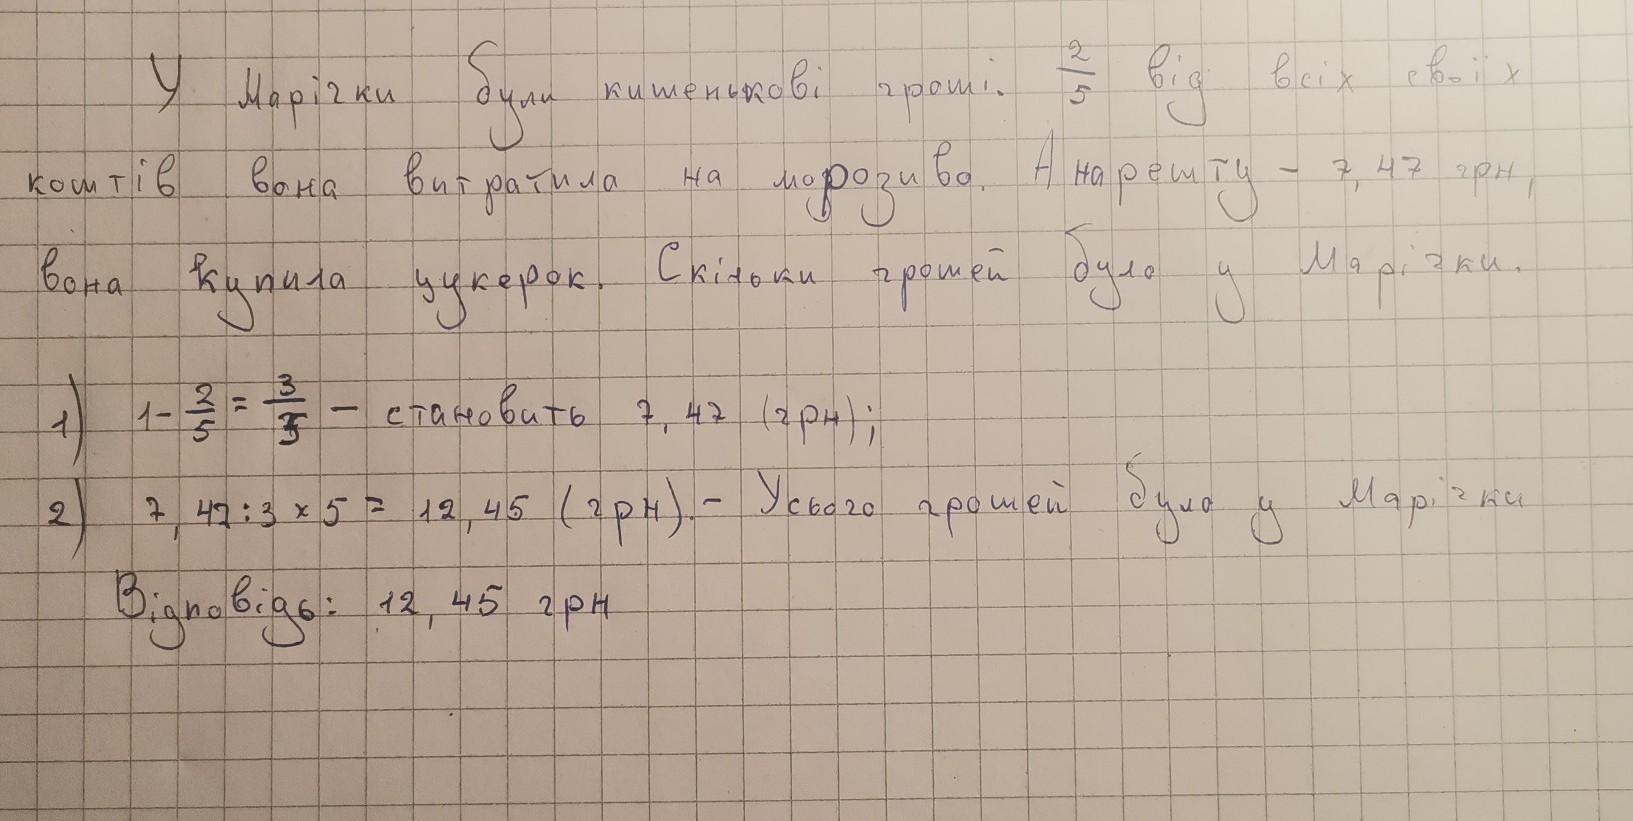 У Марічки були кишенькові гроші. 2/5 від всіх своїх
коштів вона витратила на морозиво. А нарешту - 7,47 грн,
вона купила цукерок. Скільки грошей було у Марічки.
1) 1 - 2/5 = 3/5 - становить 7,47 (грн);
2) 7,47 : 3 × 5 = 12,45 (грн). - Усього грошей було у Марічки
Відповідь: 12,45 грн